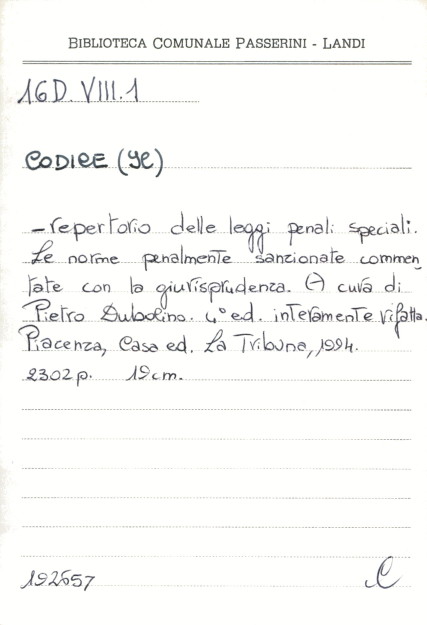 BIBLIOTECA COMUNALE PASSERINI - LANDI
16D. VIII. 1
CODICE (Il)
- repertorio delle leggi penali speciali.
Le norme penalmente sanzionate commen
tate con la giurisprudenza. (A cura di
Pietro Dubolino. 4° ed. interamente rifatta.
Piacenza, Casa ed. La Tribuna, 1994.
2302 p. 19 cm.
192657
C